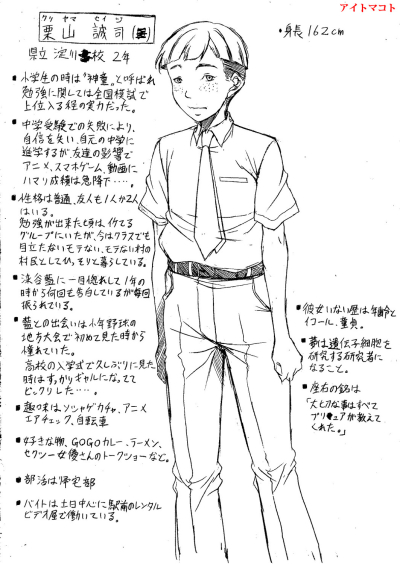 アイトマコト
クリ ヤマ セイジ
栗山 誠司
県立 淀川 高校 2年
・身長 162cm
■小学生の時は"神童"と呼ばれ
勉強に関しては全国模試で
上位入る程の実力だった。
■中学受験での失敗により、
自信を失い、自元の中学に
進学するが、友達の影響で
アニメ、スマホゲーム、動画に
ハマリ成績は急降下‥‥。
■性格は普通、友人も1人か2人
はいる。
勉強が出来た頃は、イケてる
グループにいたが、今はクラスでも
目立たないモテない、モテない村の
村民としてひっそりと暮らしている。
■渋谷藍に一目惚れして1年の
時から何回も告白しているが毎回
振られている。
■藍との出会いは少年野球の
地方大会で初めて見た時から
憧れていた。
高校の入学式で久しぶりに見た
時はすっかりギャルになってて
ビックリした‥‥。
■趣味はソシャゲガチャ、アニメ
エアチェック、自転車
■好きな物、GOGOカレー、ラーメン、
セクシー女優さんのトークショーなど。
■部活は帰宅部
■バイトは土日中心に駅前のレンタル
ビデオ屋で働いている。
■彼女いない歴は年齢と
イコール、童貞。
■夢は遺伝子細胞を
研究する研究者に
なること。
■座右の銘は
「大切な事はすべて
プリキュアが教えて
くれた。」